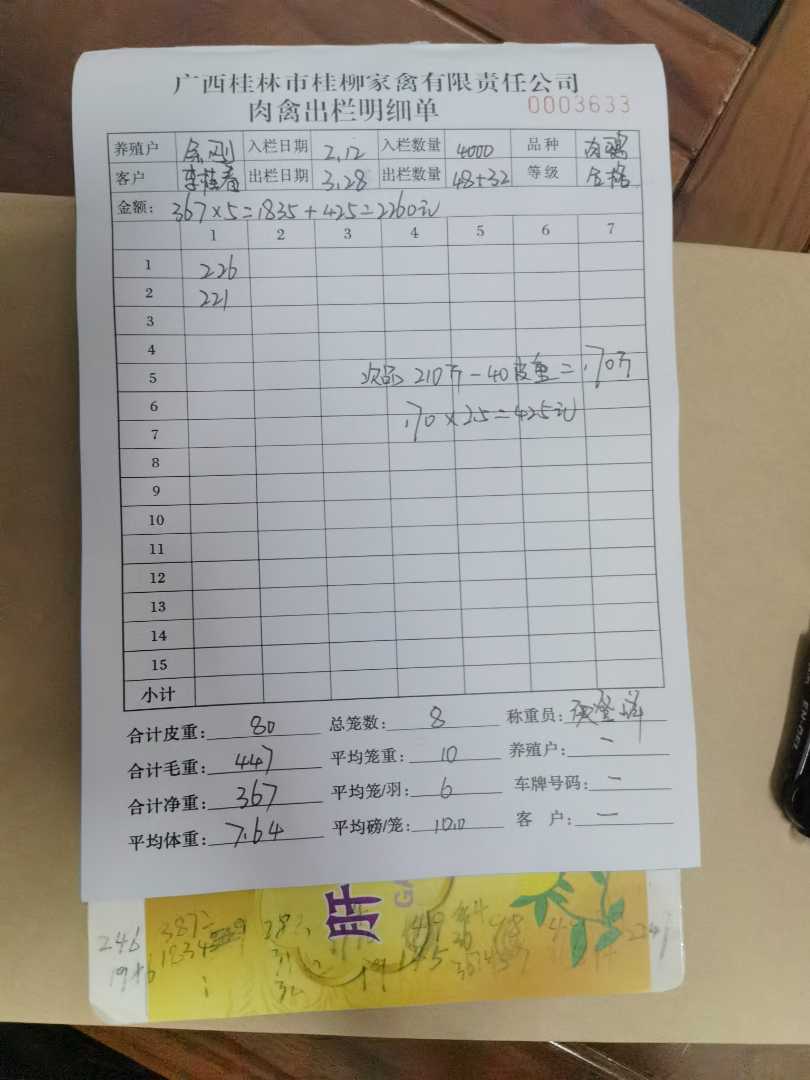 广西桂林市桂柳家禽有限责任公司
肉禽出栏明细单 0003633
养殖户 余刚 入栏日期 2.12 入栏数量 4000 品种 肉鸡
客户 李桂春 出栏日期 3.28 出栏数量 48+32 等级 合格
金额: 367×5=1835+425=2260元
1 2 3 4 5 6 7
1 226
2 221
3
4
5 次品 210斤-40皮重=170斤
6 170×2.5=425元
7
8
9
10
11
12
13
14
15
小计
合计皮重: 80 总笼数: 8 称重员:
合计毛重: 447 平均笼重: 10 养殖户: 一
合计净重: 367 平均笼/羽: 6 车牌号码: 一
平均体重: 7.64 平均磅/笼: 10.0 客 户: 一
肝
GA
246 387